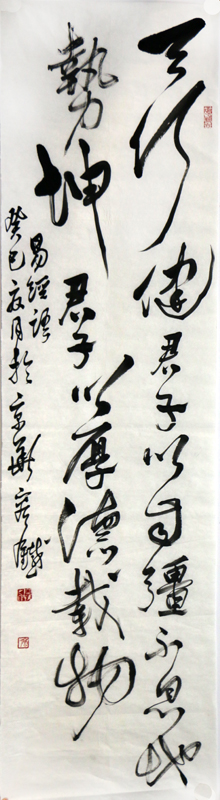 天行健君子以自彊不息地
勢坤君子以厚德載物
易經語
癸巳夏月於京華容鐵